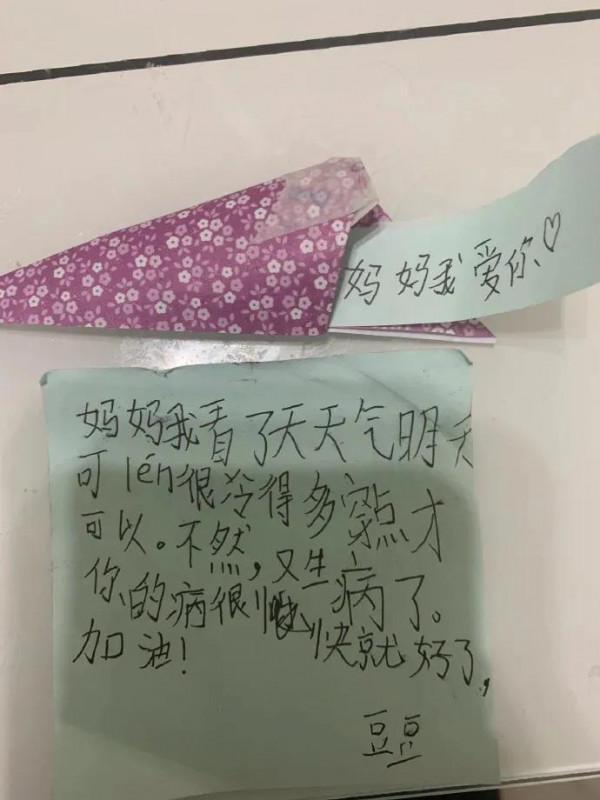 妈妈我爱你♡
妈妈我看了天天气明天
可lén很冷得多穿点才
可以。不然,又生病了。
你的病很快就好了,
加油!
豆豆